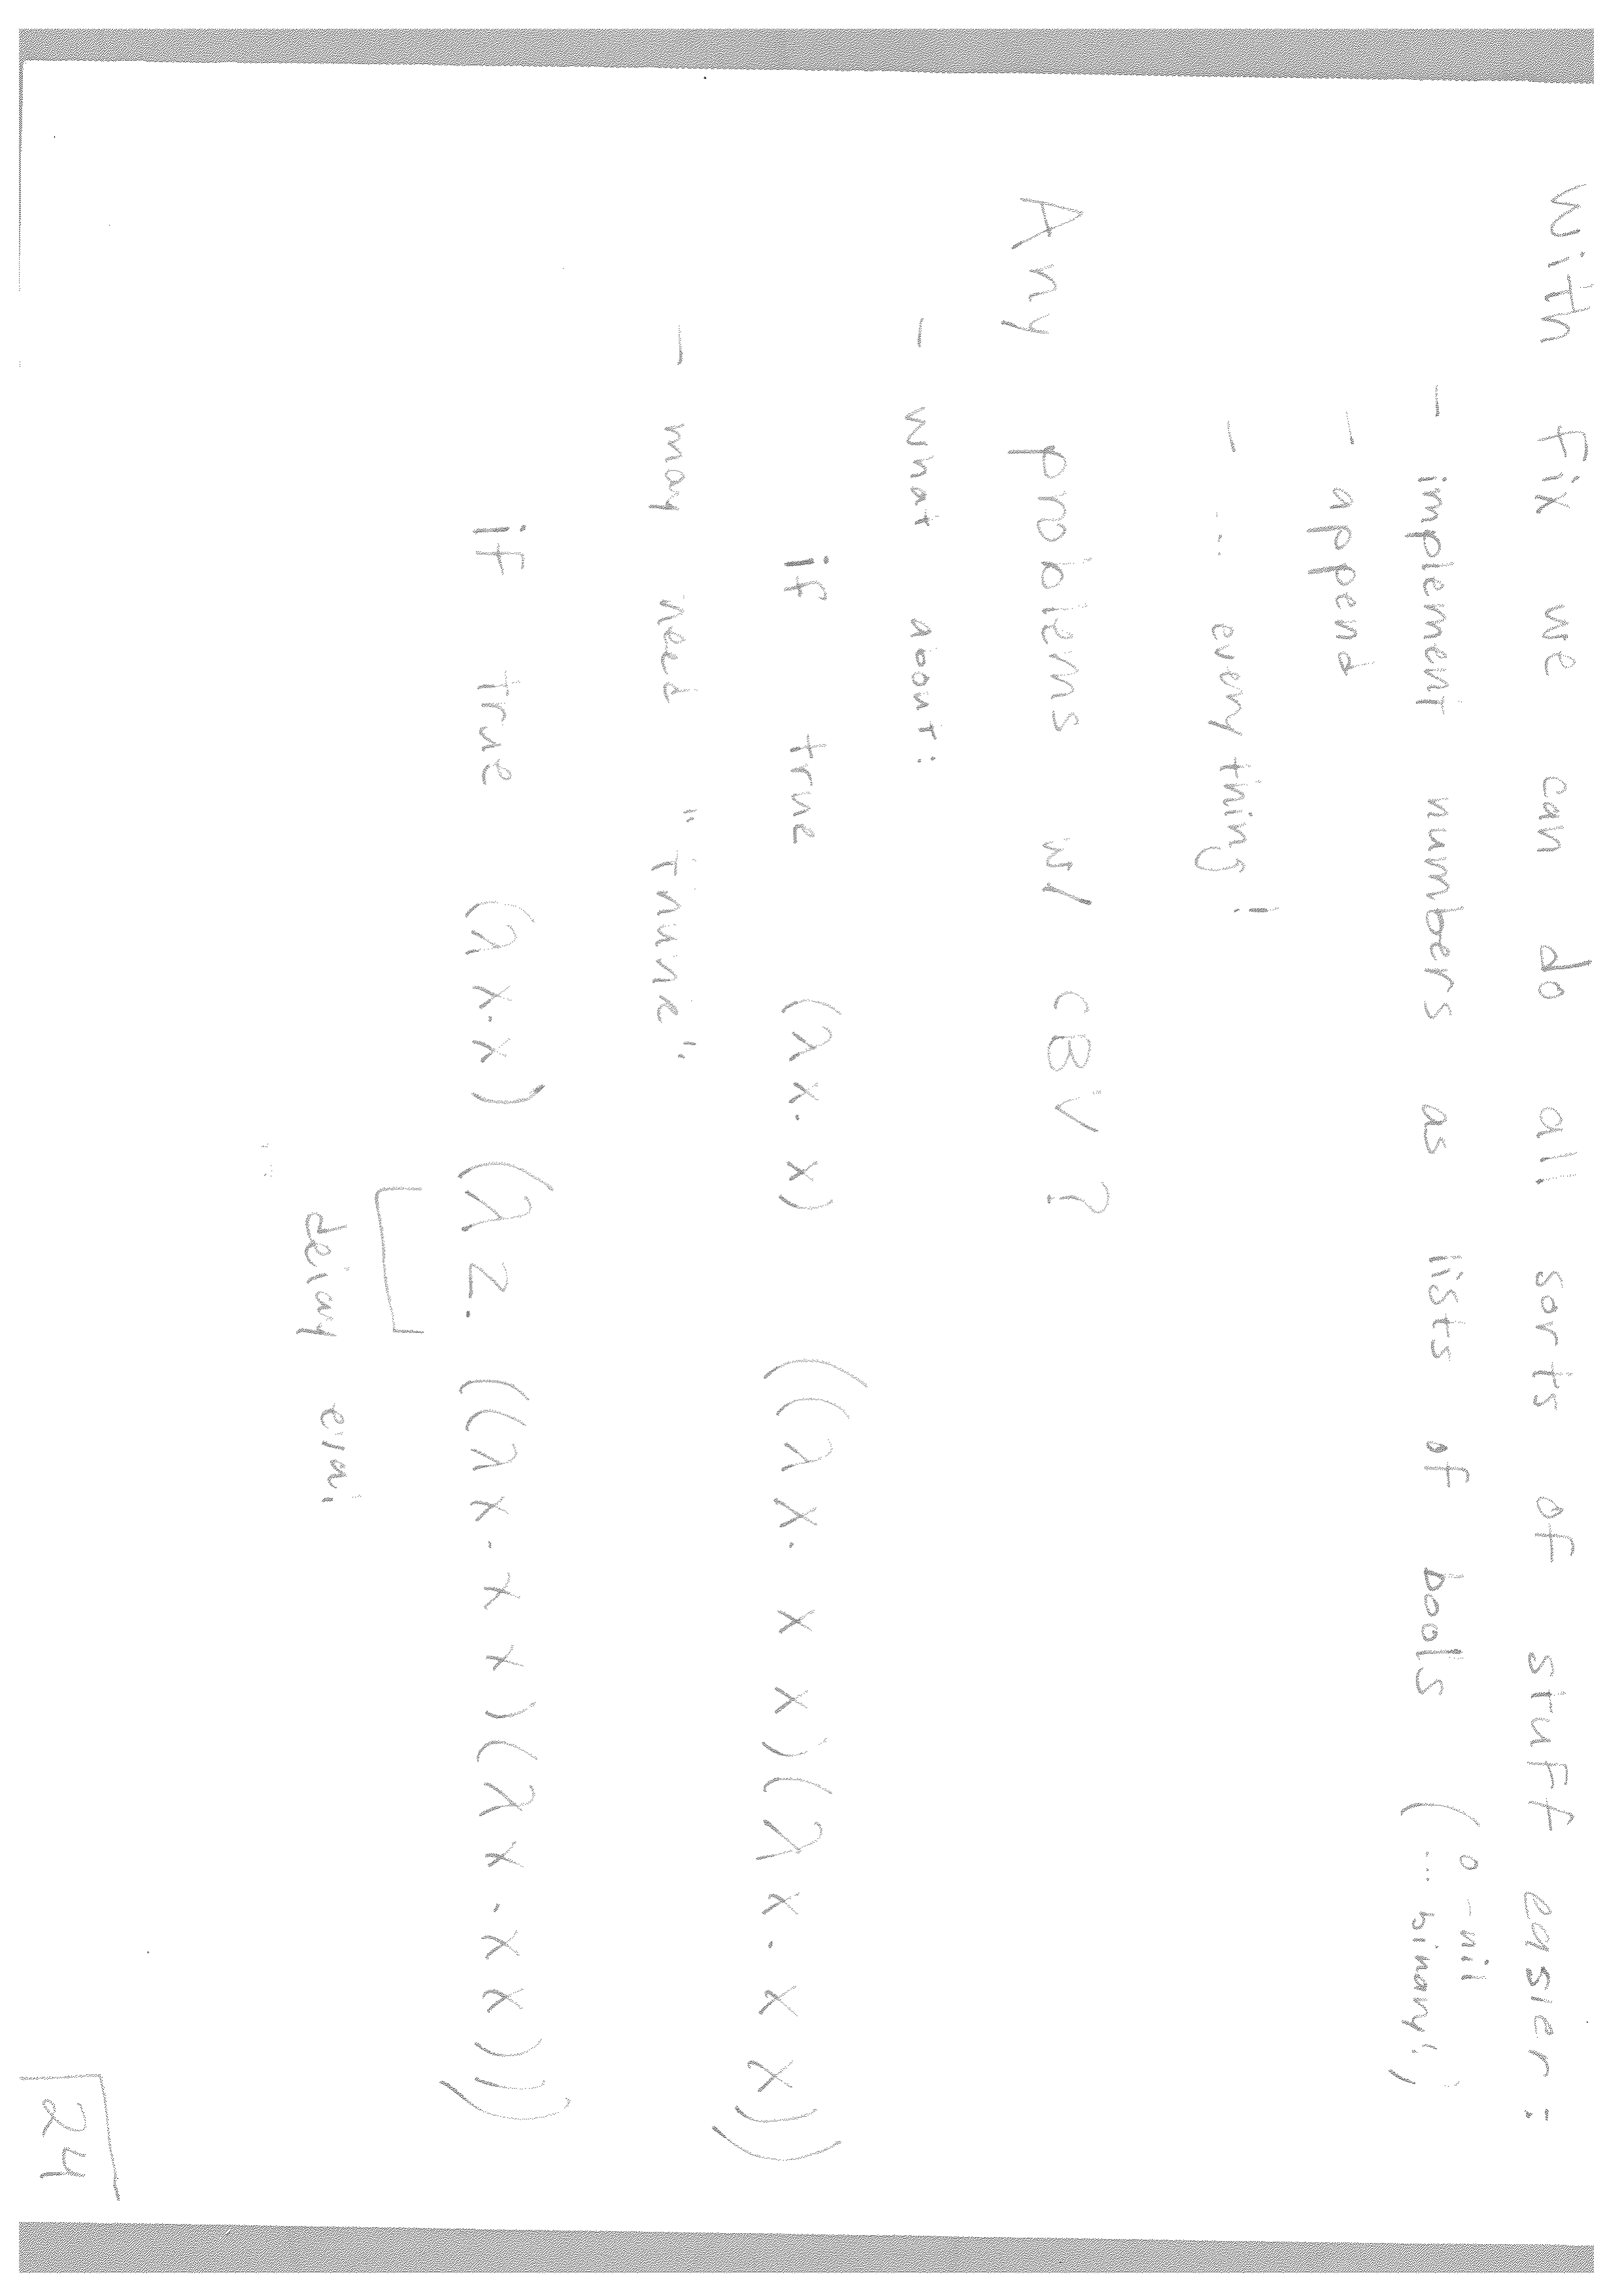 With fix we can do all sorts of stuff easier:
- implement numbers as lists of bools (0 - nil
... binary!)
- append
- ... everything!
Any problems w/ CBV?
- what about:
if true (λx. x) ((λx. x x)(λx. x x))
- may need "thunk"
if true (λx.x) (λz. ((λx. x x)(λx. x x)))
delay eval
24